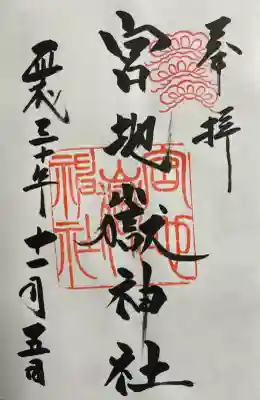 奉拝
宮地嶽神社
平成三十年十一月五日
宮地
嶽神社